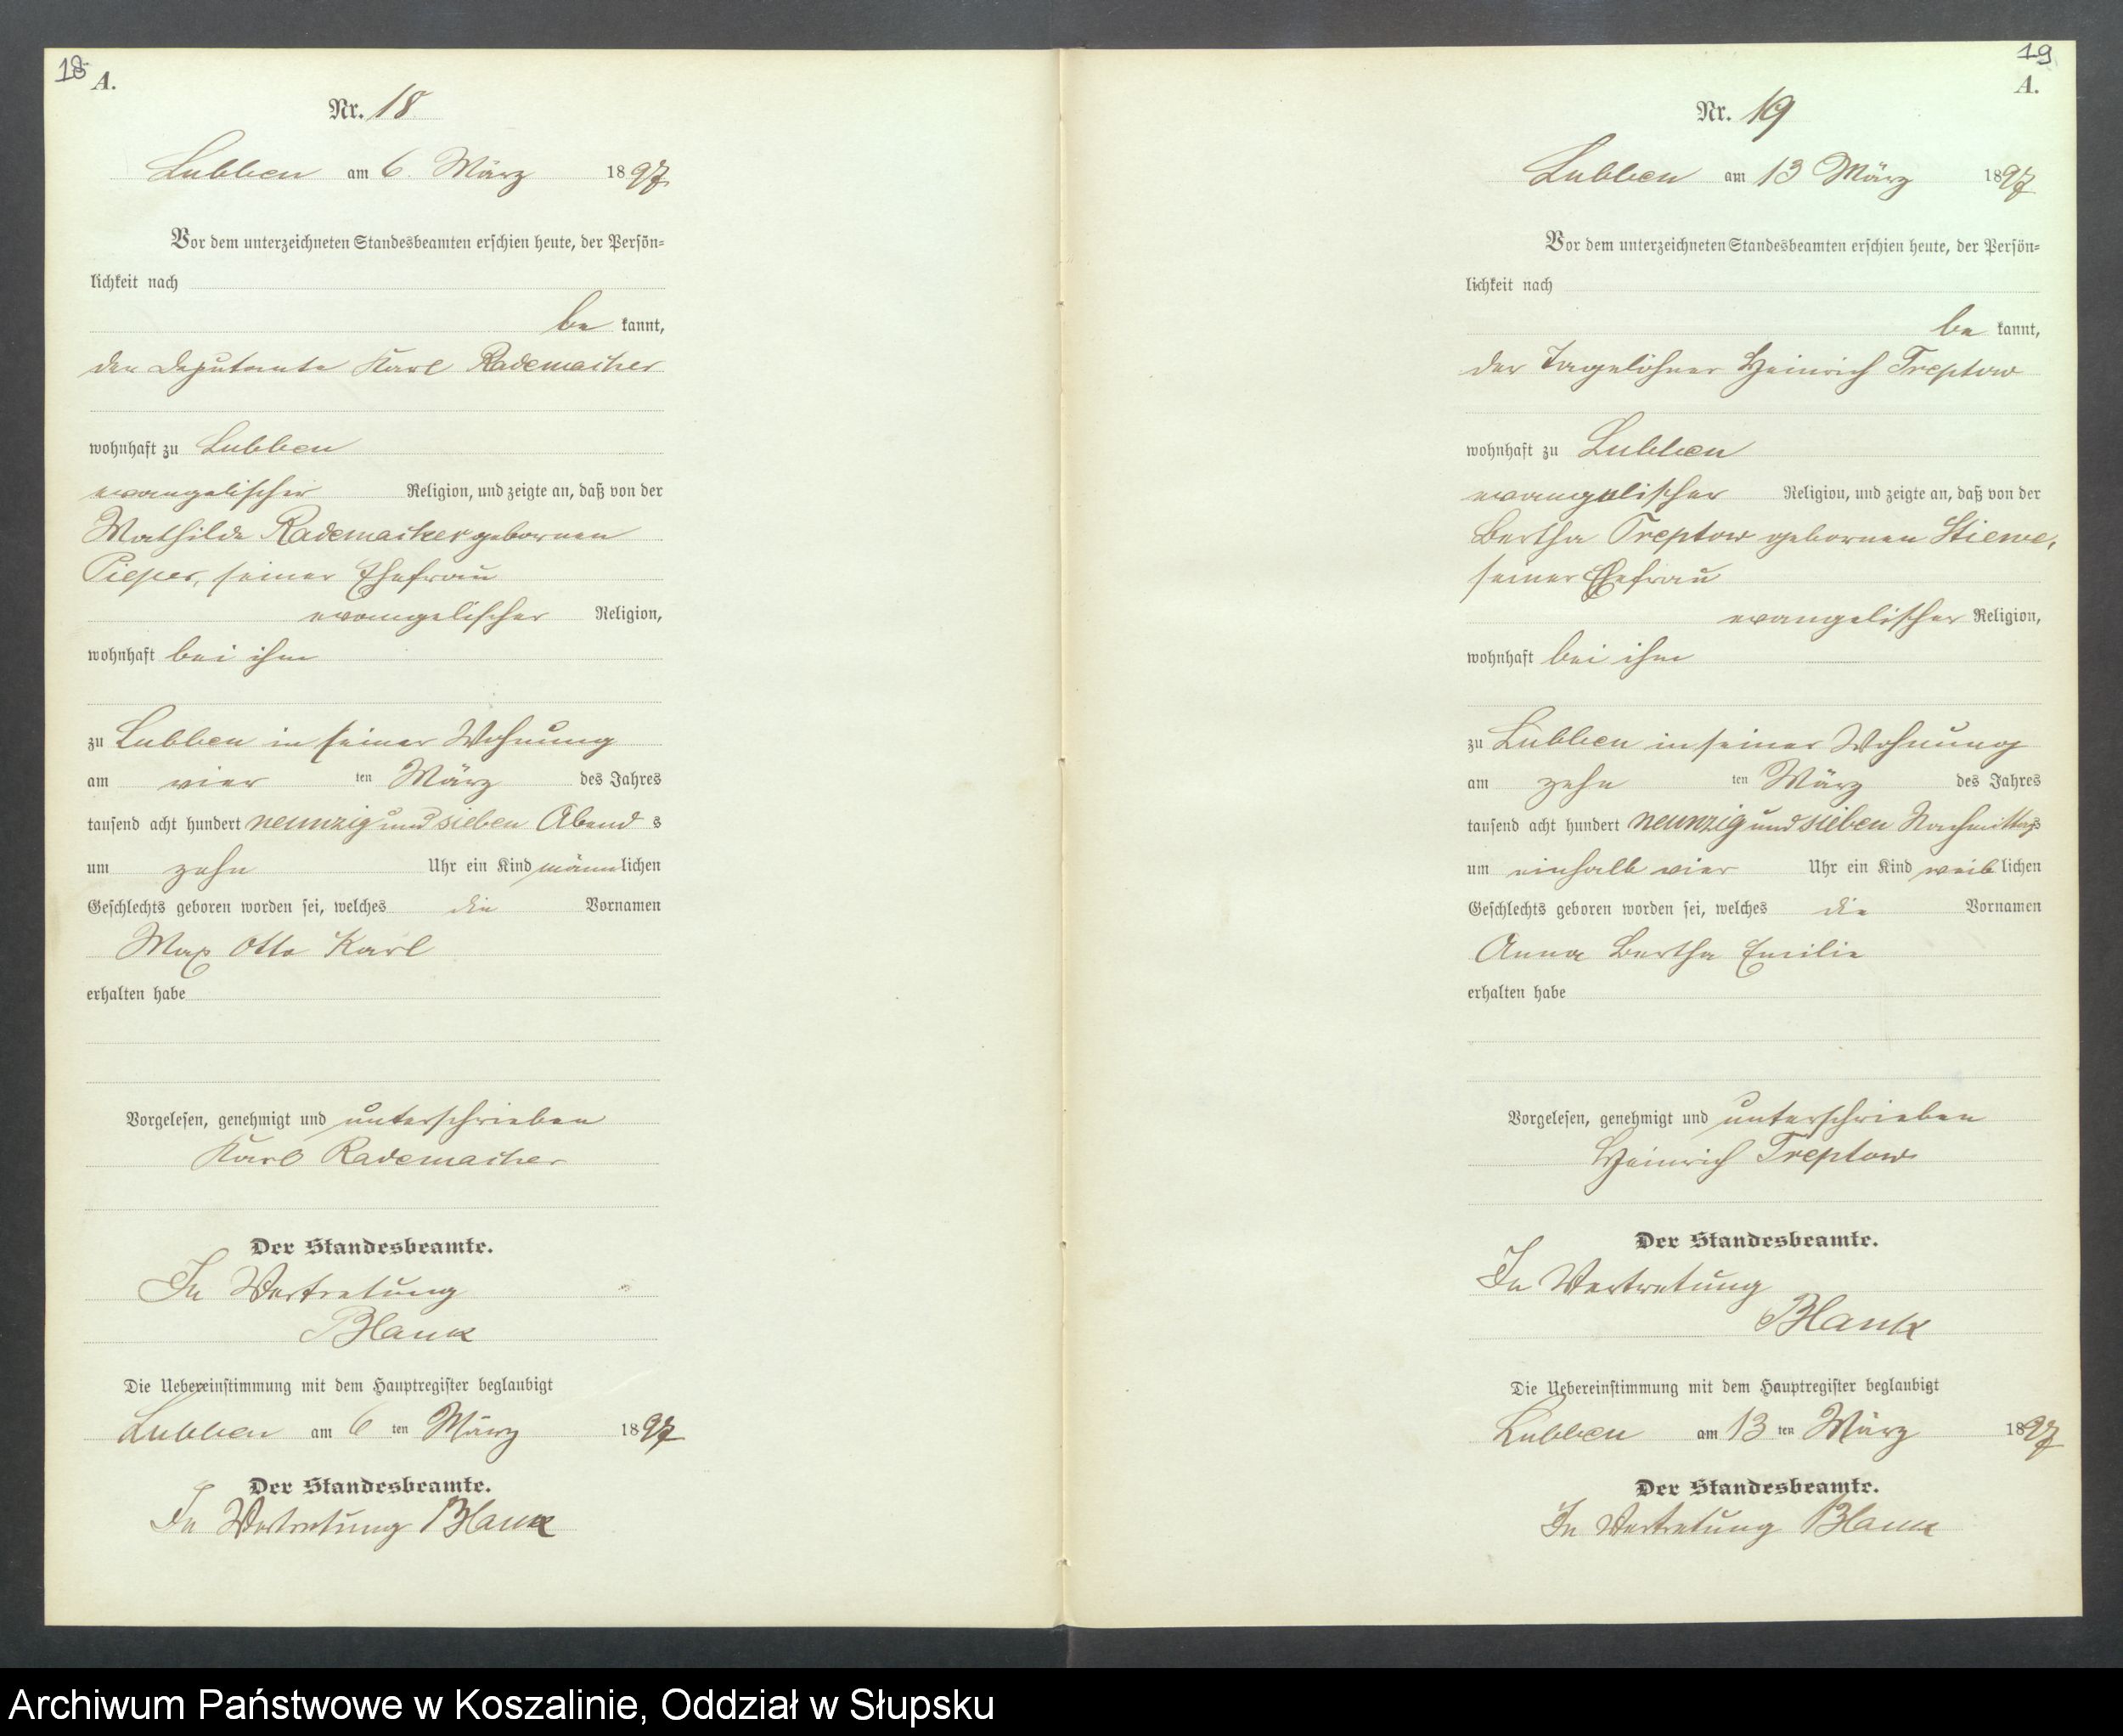 18
A.
Nr. 18
Lubben am 6. März 1897
Vor dem unterzeichneten Standesbeamten erschien heute, der Persön=
lichkeit nach
be kannt,
der Deputante Karl Rademacher
wohnhaft zu Lubben
evangelischer Religion, und zeigte an, daß von der
Mathilde Rademacher gebornen
Pieper, seiner Ehefrau
evangelischer Religion,
wohnhaft bei ihm
zu Lubben in seiner Wohnung
am vier ten März des Jahres
tausend acht hundert neunzig und sieben Abend s
um zehn Uhr ein Kind männlichen
Geschlechts geboren worden sei, welches die Vornamen
Max Otto Karl
erhalten habe
Vorgelesen, genehmigt und unterschrieben
Karl Rademacher
Der Standesbeamte.
In Vertretung
Blank
Die Uebereinstimmung mit dem Hauptregister beglaubigt
Lubben am 6 ten März 1897
Der Standesbeamte.
In Vertretung Blank
19
A.
Nr. 19
Lubben am 13 März 1897
Vor dem unterzeichneten Standesbeamten erschien heute, der Persön=
lichkeit nach
be kannt,
der Tagelöhner Heinrich Treptow
wohnhaft zu Lubben
evangelischer Religion, und zeigte an, daß von der
Bertha Treptow gebornen Stiewe,
seiner Ehefrau
evangelischer Religion,
wohnhaft bei ihm
zu Lubben in seiner Wohnung
am zehn ten März des Jahres
tausend acht hundert neunzig und sieben Nachmittags
um einhalb vier Uhr ein Kind weiblichen
Geschlechts geboren worden sei, welches die Vornamen
Anna Bertha Emilie
erhalten habe
Vorgelesen, genehmigt und unterschrieben
Heinrich Treptow
Der Standesbeamte.
In Vertretung
Blank
Die Uebereinstimmung mit dem Hauptregister beglaubigt
Lubben am 13 ten März 1897
Der Standesbeamte.
In Vertretung Blank
Archiwum Państwowe w Koszalinie, Oddział w Słupsku